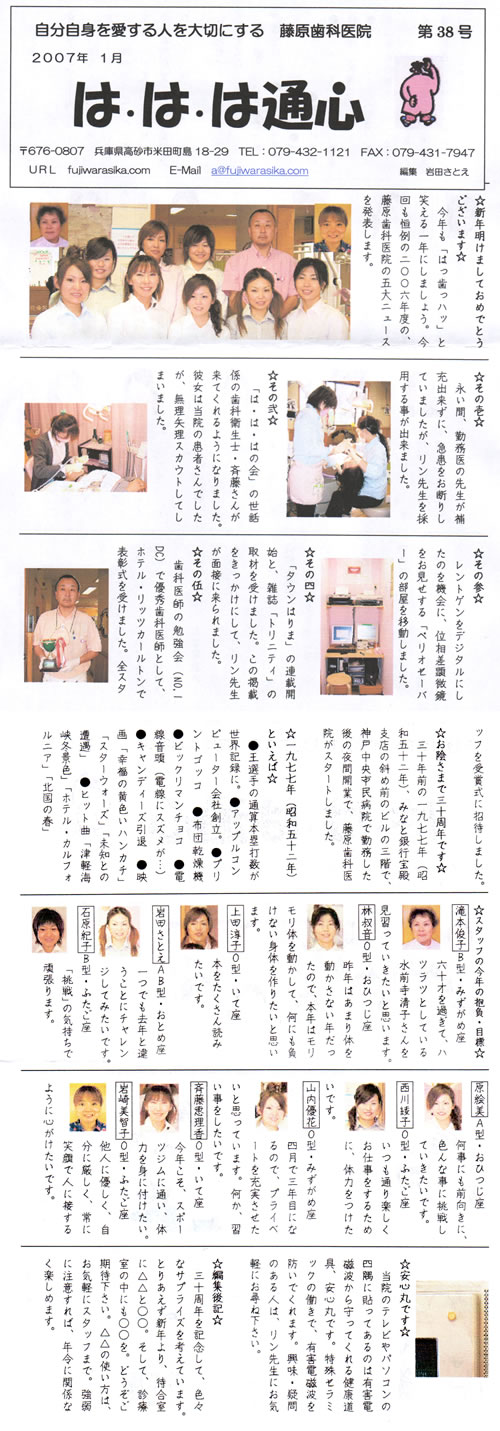 自分自身を愛する人を大切にする 藤原歯科医院 第38号
2007年 1月
は・は・は通心
〒676-0807 兵庫県高砂市米田町島18-29 TEL:079-432-1121 FAX:079-431-7947
URL fujiwarasika.com E-Mail a@fujiwarasika.com 編集 岩田さとえ
☆新年明けましておめでとう
ございます☆
今年も「はっ歯っハッ」と
笑える一年にしましょう。今
回も恒例の二〇〇六年度の、
藤原歯科医院の五大ニュース
を発表します。
☆その壱☆
永い間、勤務医の先生が補
充出来ずに、急患をお断りし
ていましたが、リン先生を採
用する事が出来ました。
☆その弐☆
「は・は・はの会」の世話
係の歯科衛生士・斉藤さんが
来てくれるようになりました。
彼女は当院の患者さんでした
が、無理矢理スカウトしてし
まいました。
☆その参☆
レントゲンをデジタルにし
たのを機会に、位相差顕微鏡
をお見せする「ペリオセーバ
ー」の部屋を移動しました。
☆その四☆
「タウンはりま」の連載開
始と、雑誌「トリニティ」の
取材を受けました。この掲載
をきっかけにして、リン先生
が面接に来られました。
☆その伍☆
歯科医師の勉強会(NO.1
DC)で優秀歯科医師として、
ホテル・リッツカールトンで
表彰式を受けました。全スタ
ッフを受賞式に招待しました。
☆お陰さまで三十周年です☆
三十年前の一九七七年(昭
和五十二年)、みなと銀行宝殿
支店の斜め前のビルの三階で、
神戸中央市民病院で勤務した
後の夜間開業で、藤原歯科医
院がスタートしました。
☆一九七七年(昭和五十二年)
といえば☆
●王選手の通算本塁打数が
世界記録に。●アップルコン
ピューター会社創立。●プリ
ントゴッコ ●布団乾燥機
●ビックリマンチョコ ●電
線音頭(電線にスズメが…)
●キャンディーズ引退 ●映
画「幸福の黄色いハンカチ」
「スターウォーズ」「未知との
遭遇」 ●ヒット曲「津軽海
峡冬景色」「ホテル・カルフォ
ルニア」「北国の春」
☆スタッフの今年の抱負・目標☆
滝本俊子B型・みずがめ座
六十才を過ぎて、ハ
ツラツとしている
水前寺清子さんを
見習っていきたいと思います。
林叔音O型・おひつじ座
昨年はあまり体を
動かさない年だっ
たので、本年はモリ
モリ体を動かして、何にも負
けない身体を作りたいと思い
ます。
上田淳子O型・いて座
本をたくさん読み
たいです。
岩田さとえAB型・おとめ座
一つでも去年と違
うことにチャレン
ジしてみたいです。
石原紀子B型・ふたご座
「挑戦」の気持ちで
頑張ります。
原絵美A型・おひつじ座
何事にも前向きに、
色んな事に挑戦し
ていきたいです。
西川綾子O型・ふたご座
いつも通り楽しく
お仕事をするため
に、体力をつけた
いです。
山内優花O型・みずがめ座
四月で三年目にな
るので、プライベ
ートを充実させた
いと思っています。何か、習
い事をしたいです。
斉藤恵理香O型・いて座
今年こそ、スポー
ツジムに通い、体
力を身に付けたい。
岩崎美智子O型・ふたご座
他人に優しく、自
分に厳しく、常に
笑顔で人に接する
ように心がけたいです。
☆安心丸です☆
当院のテレビやパソコンの
四隅に貼ってあるのは有害電
磁波から守ってくれる健康道
具、安心丸です。特殊セラミ
ックの働きで、有害電磁波を
防いでくれます。興味・疑問
のある人は、リン先生にお気
軽にお尋ね下さい。
☆編集後記☆
三十周年を記念して、色々
なサプライズを考えています。
とりあえず新年より、待合室
に△△と〇〇。そして、診療
室の中にも〇〇を。どうぞご
期待下さい。△△の使い方は、
お気軽にスタッフまで。強弱
に注意すれば、年令に関係な
く楽しめます。